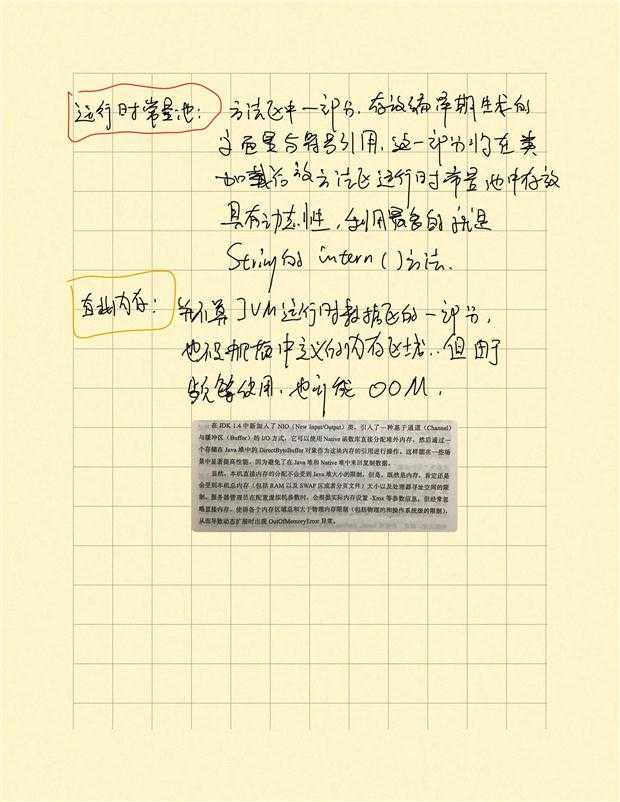 运行时常量池: 方法区中一部分. 存放编译期生成的
字面量与符号引用, 这一部分将在类
加载后放方法区运行时常量池中存放
具有动态性, 利用最多的就是
String的 intern()方法.
直接内存: 并不算JVM运行时数据区的一部分,
也没规范中定义的内存区域.. 但由于
频繁使用, 也可能 OOM.
在 JDK 1.4 中新加入了 NIO(New Input/Output)类,引入了一种基于通道(Channel)
与缓冲区(Buffer)的 I/O 方式,它可以使用 Native 函数库直接分配堆外内存,然后通过一
个存储在 Java 堆中的 DirectByteBuffer 对象作为这块内存的引用进行操作。这样能在一些场
景中显著提高性能,因为避免了在 Java 堆和 Native 堆中来回复制数据。
显然,本机直接内存的分配不会受到 Java 堆大小的限制,但是,既然是内存,肯定还是
会受到本机总内存(包括 RAM 以及 SWAP 区或者分页文件)大小以及处理器寻址空间的限
制。服务器管理员在配置虚拟机参数时,会根据实际内存设置 -Xmx 等参数信息,但经常忽
略直接内存,使得各个内存区域总和大于物理内存限制(包括物理的和操作系统级的限制),
从而导致动态扩展时出现 OutOfMemoryError 异常。